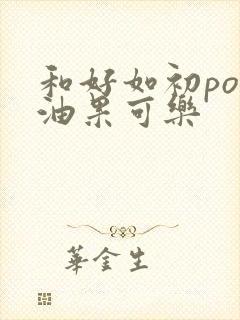 和好如初po
油果可樂
華金生